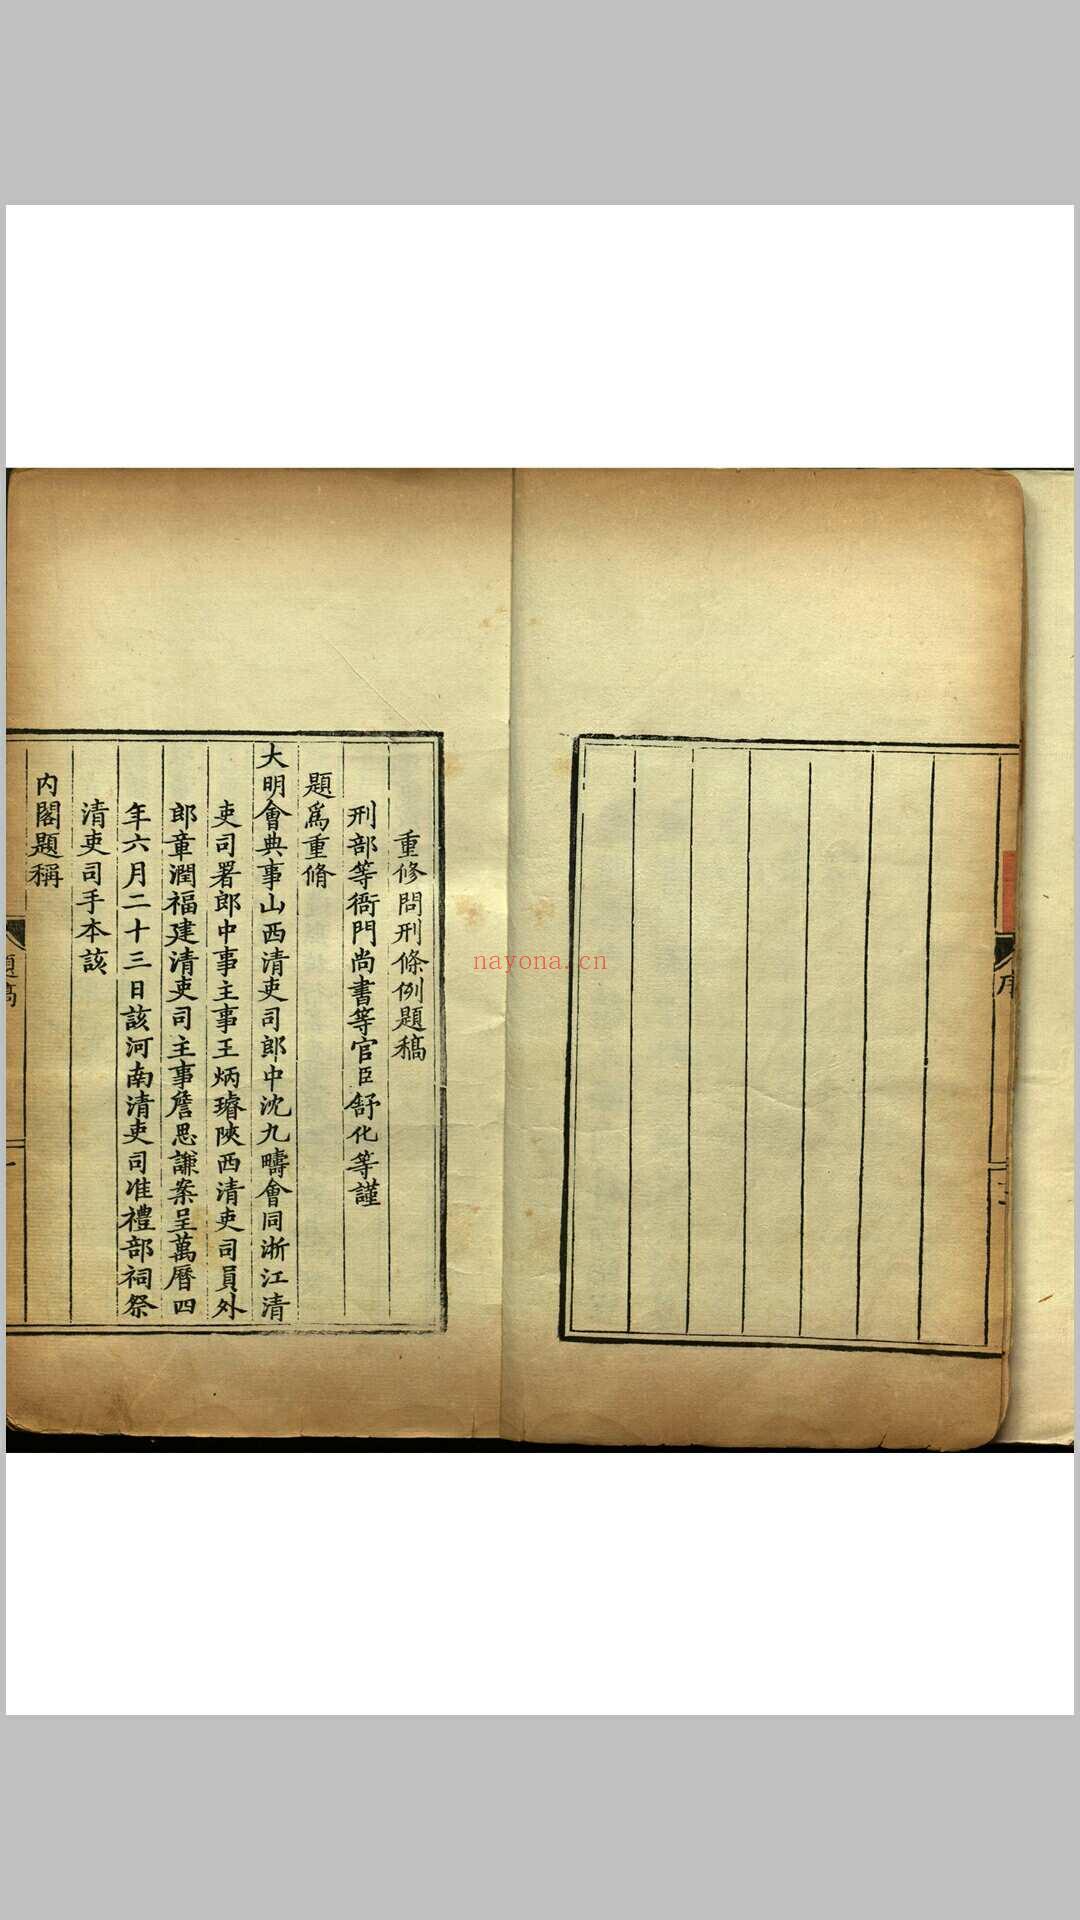 序
重修問刑條例題稿
刑部等衙門尚書等官臣舒化等謹
題爲重脩
大明會典事山西清吏司郎中沈九疇會同浙江清
吏司署郎中事主事王炳璿陝西清吏司員外
郎章潤福建清吏司主事詹思謙案呈萬曆四
年六月二十三日該河南清吏司准禮部祠祭
清吏司手本該
內閣題稱
題稿
一
nayona.cn